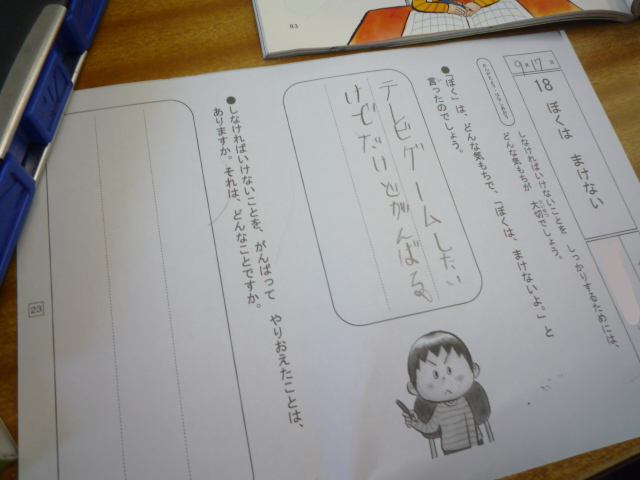 83
9月17日
18 ぼくは まけない
しなければいけないことを しっかりするためには、
どんな気もちが 大切でしょう。
●「ぼく」は、どんな気もちで、「ぼくは、まけないよ。」と
言ったのでしょう。
テレビゲームしたい
けどだいどがんばる
●しなければいけないことを、がんばって やりおえたことは、
ありますか。それは、どんなことですか。
23